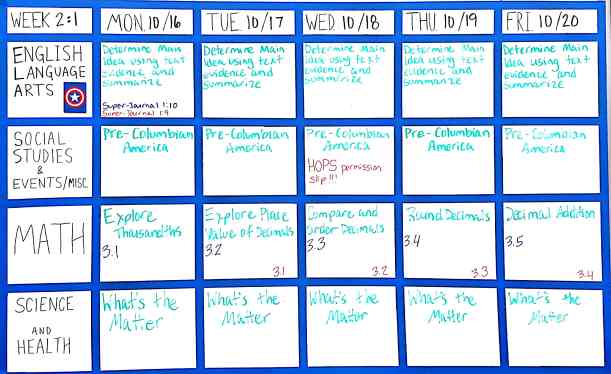 WEEK 2:1
MON 10/16
TUE 10/17
WED 10/18
THU 10/19
FRI 10/20
ENGLISH
LANGUAGE
ARTS
Determine Main
Idea using text
evidence and
summarize
Super-Journal 1:10
Super-Journal 1:9
Determine Main
Idea using text
evidence and
summarize
Determine Main
Idea using text
evidence and
summarize
Determine Main
Idea using text
evidence and
summarize
Determine Main
Idea using text
evidence and
summarize
SOCIAL
STUDIES
&
EVENTS/MISC
Pre-Columbian
America
Pre-Columbian
America
Pre-Columbian
America
HOPS permission
slip!!!
Pre-Columbian
America
Pre-Columbian
America
MATH
Explore
Thousandths
3.1
Explore Place
Value of Decimals
3.2
3.1
Compare and
Order Decimals
3.3
3.2
Round Decimals
3.4
3.3
Decimal Addition
3.5
3.4
SCIENCE
AND
HEALTH
What's the
Matter
What's the
Matter
What's the
Matter
What's the
Matter
What's the
Matter